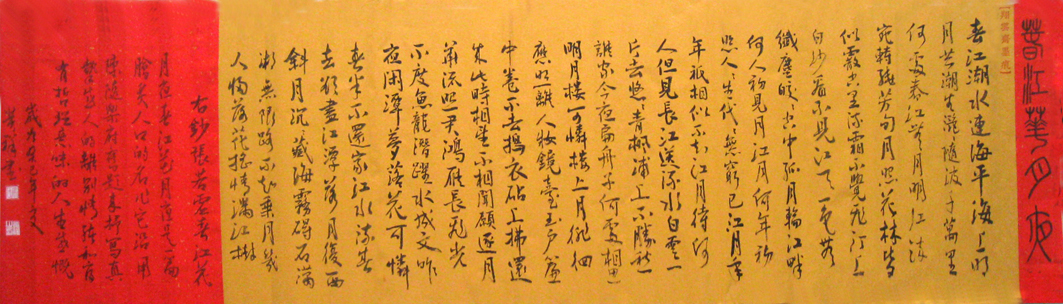 春江華月夜
春江潮水連海平海上明
月共潮生灧灧隨波千萬里
何處春江無月明江流
宛轉繞芳甸月照花林皆
似霰空里流霜不覺飛汀上
白沙看不見江天一色無
纖塵皎皎空中孤月輪江畔
何人初見月江月何年初
照人人生代代無窮已江月年
年祇相似不知江月待何
人但見長江送流水白雲一
片去悠悠青楓浦上不勝愁
誰家今夜扁舟子何處相思
明月樓可憐樓上月徘徊
應照離人妝鏡臺玉戶簾
中卷不去搗衣砧上拂還
來此時相望不相聞願逐月
華流照君鴻雁長飛光
不度魚龍潛躍水成文昨
夜閑潭夢落花可憐
春半不還家江水流春
去欲盡江潭落月復西
斜月沉沉藏海霧碣石瀟
湘無限路不知乘月幾
人歸落花搖情滿江樹
右鈔張若虛春江花
月夜春江花月夜是一篇
膾炙人口的名作它沿用
陳隋樂府舊題來抒寫真
摯動人的離別情緒和富
有哲理意味的人生感慨